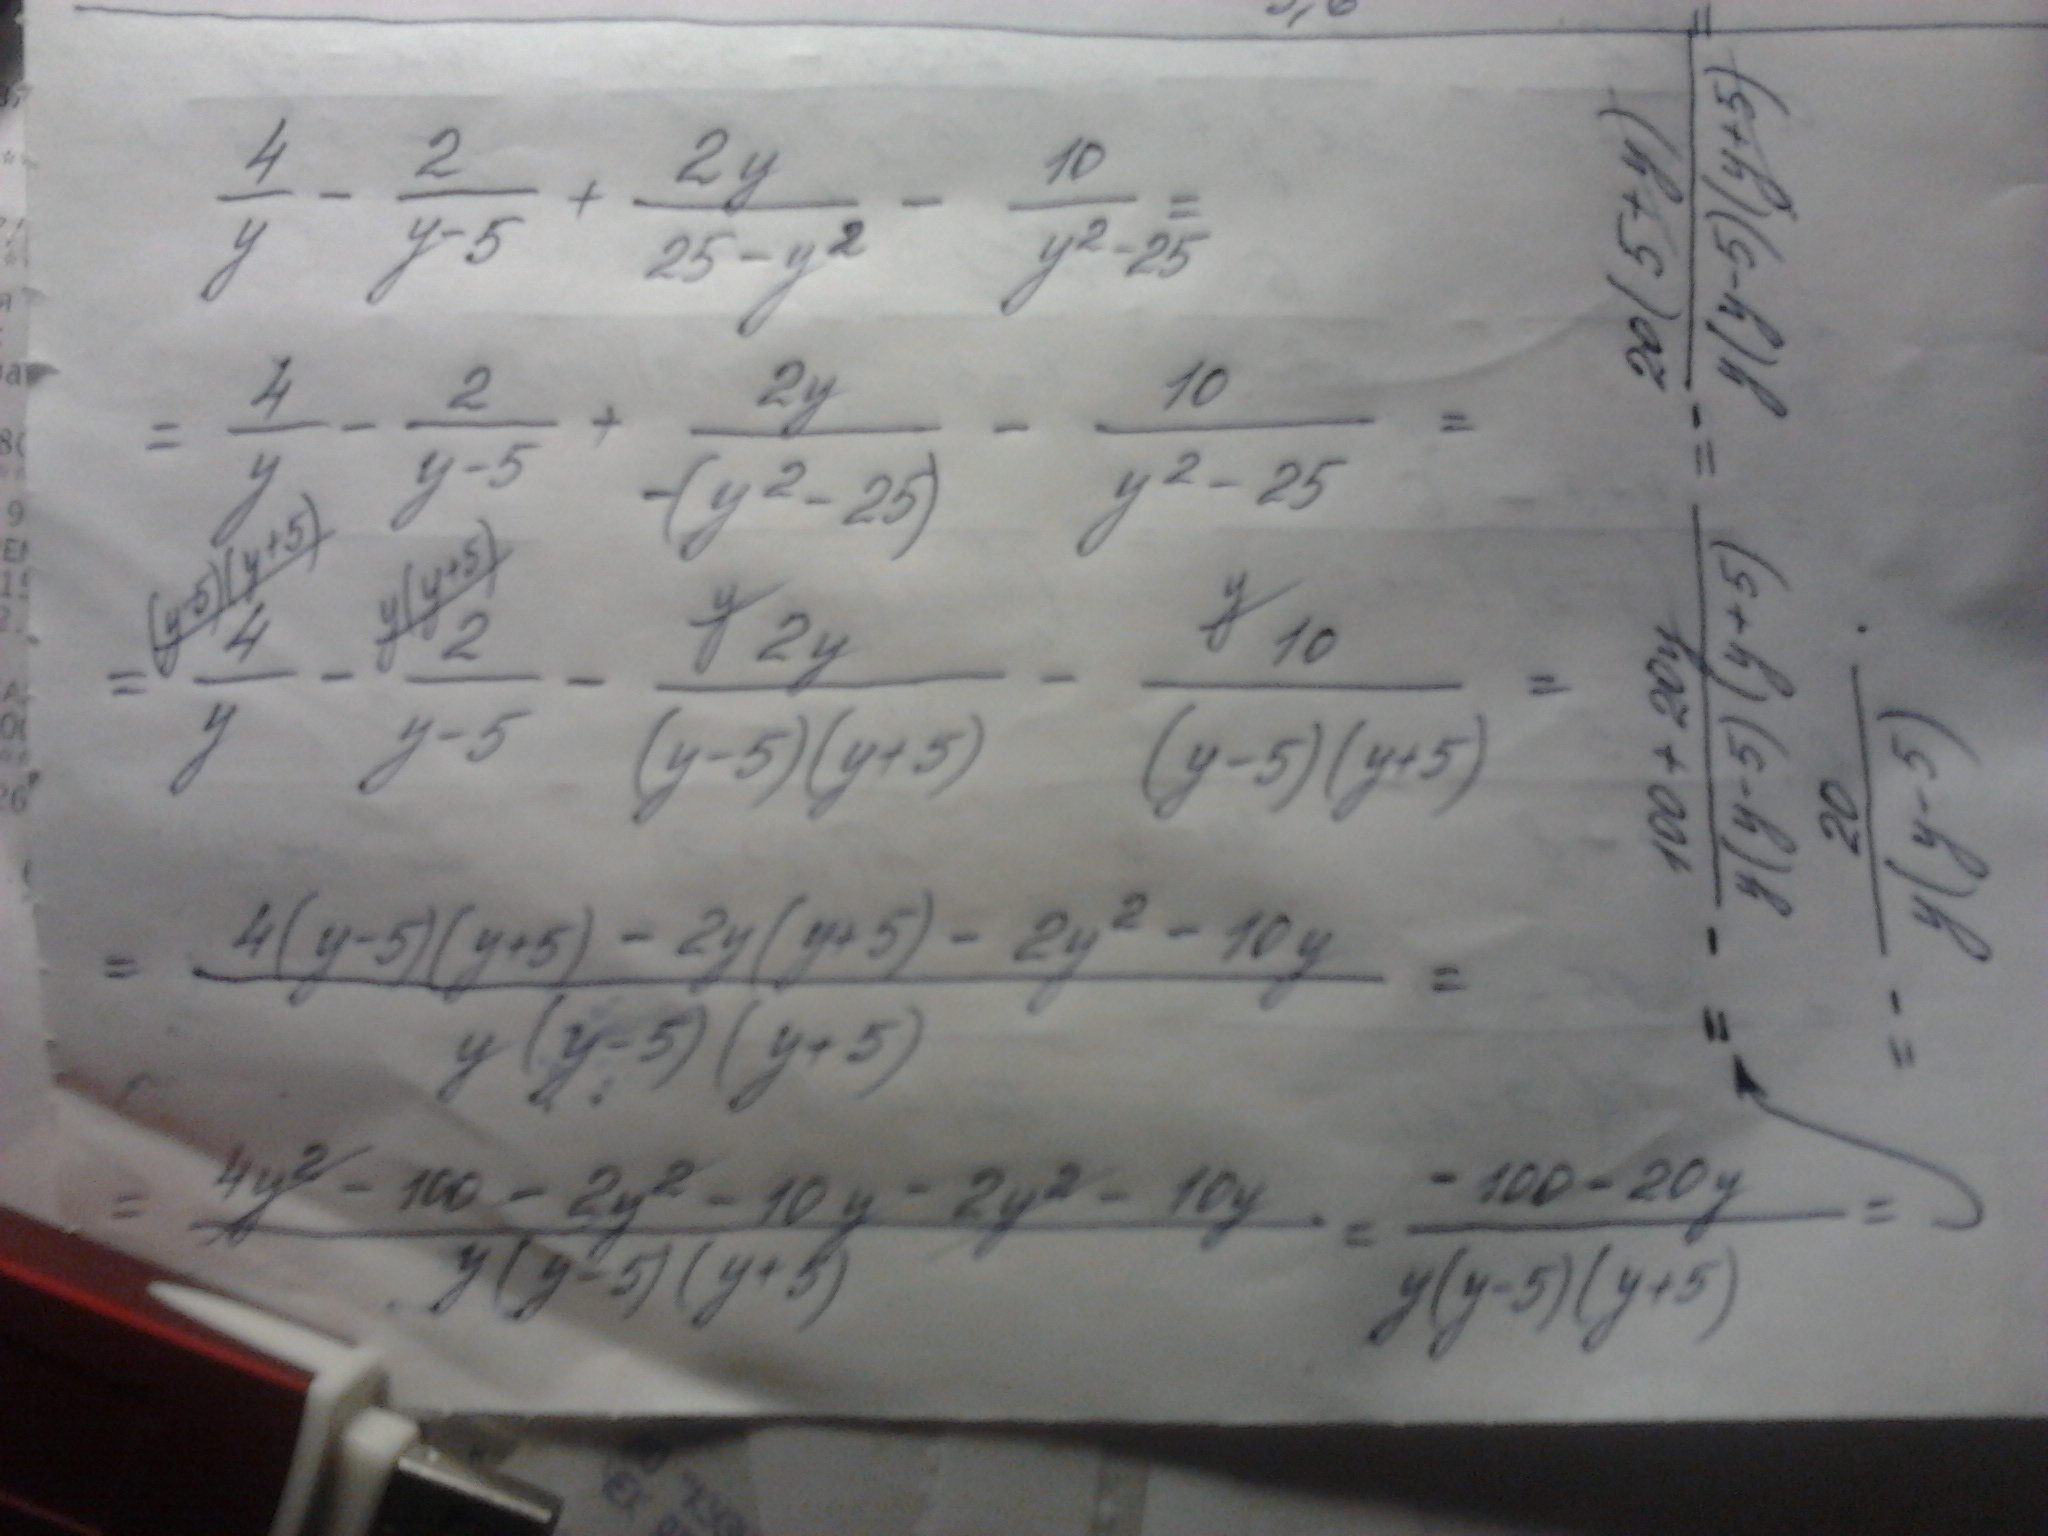 4/y - 2/(y-5) + 2y/(25-y²) - 10/(y²-25) =
= 4/y - 2/(y-5) + 2y/(-(y²-25)) - 10/(y²-25) =
= (y-5)(y+5) 4/y - y(y+5) 2/(y-5) - y 2y/((y-5)(y+5)) - y 10/((y-5)(y+5)) =
= (4(y-5)(y+5) - 2y(y+5) - 2y² - 10y)/(y(y-5)(y+5)) =
= (4y² - 100 - 2y² - 10y - 2y² - 10y)/(y(y-5)(y+5)) = (-100-20y)/(y(y-5)(y+5)) =
= - (100+20y)/(y(y-5)(y+5)) = - (20(5+y))/(y(y-5)(y+5)) =
= - 20/(y(y-5)).